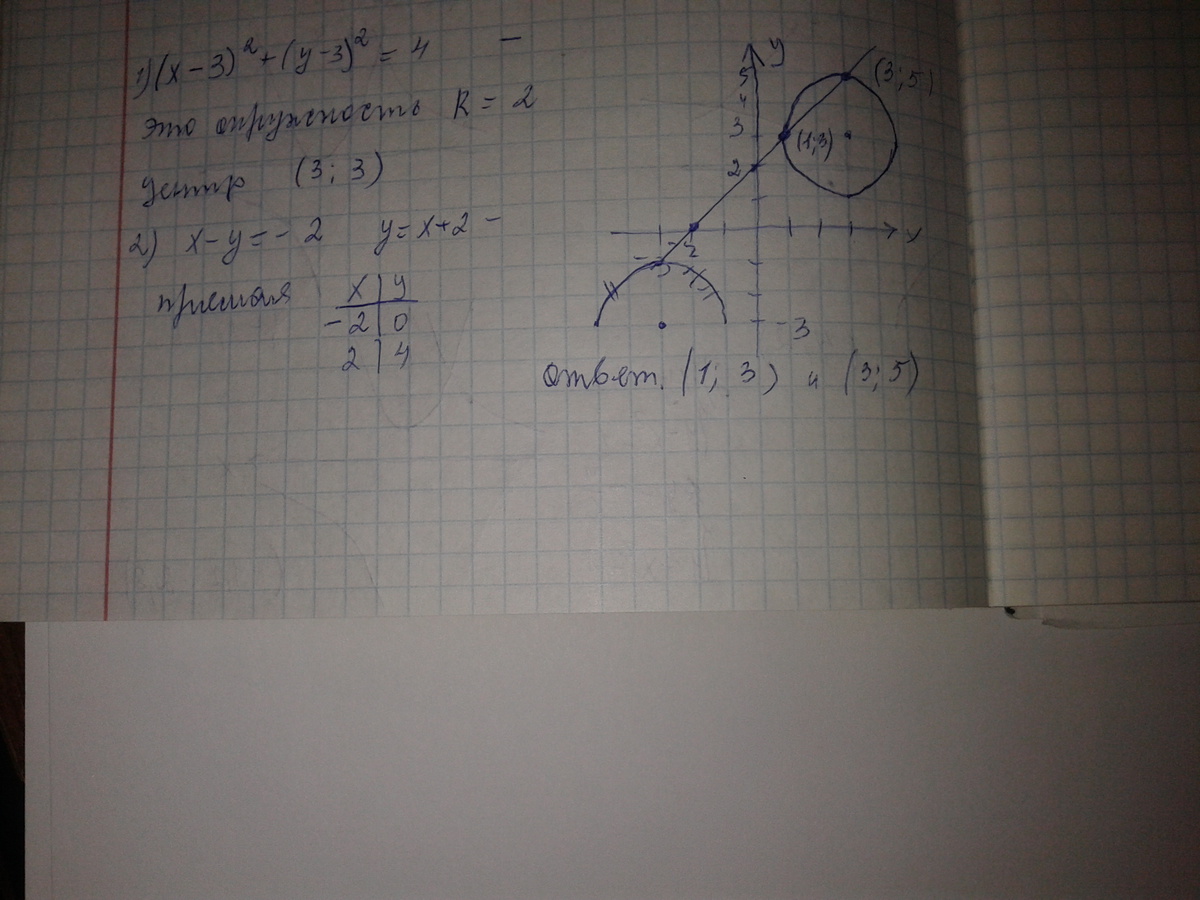 1) (x-3)² + (y-3)² = 4 —
это окружность R = 2
центр (3; 3)
2) x-y=-2 y=x+2 -
прямая
x | y
-2 | 0
2 | 4
y
5
4
3
2
(3; 5)
(1;3)
x
-2
-3
-3
ответ. (1; 3) и (3; 5)